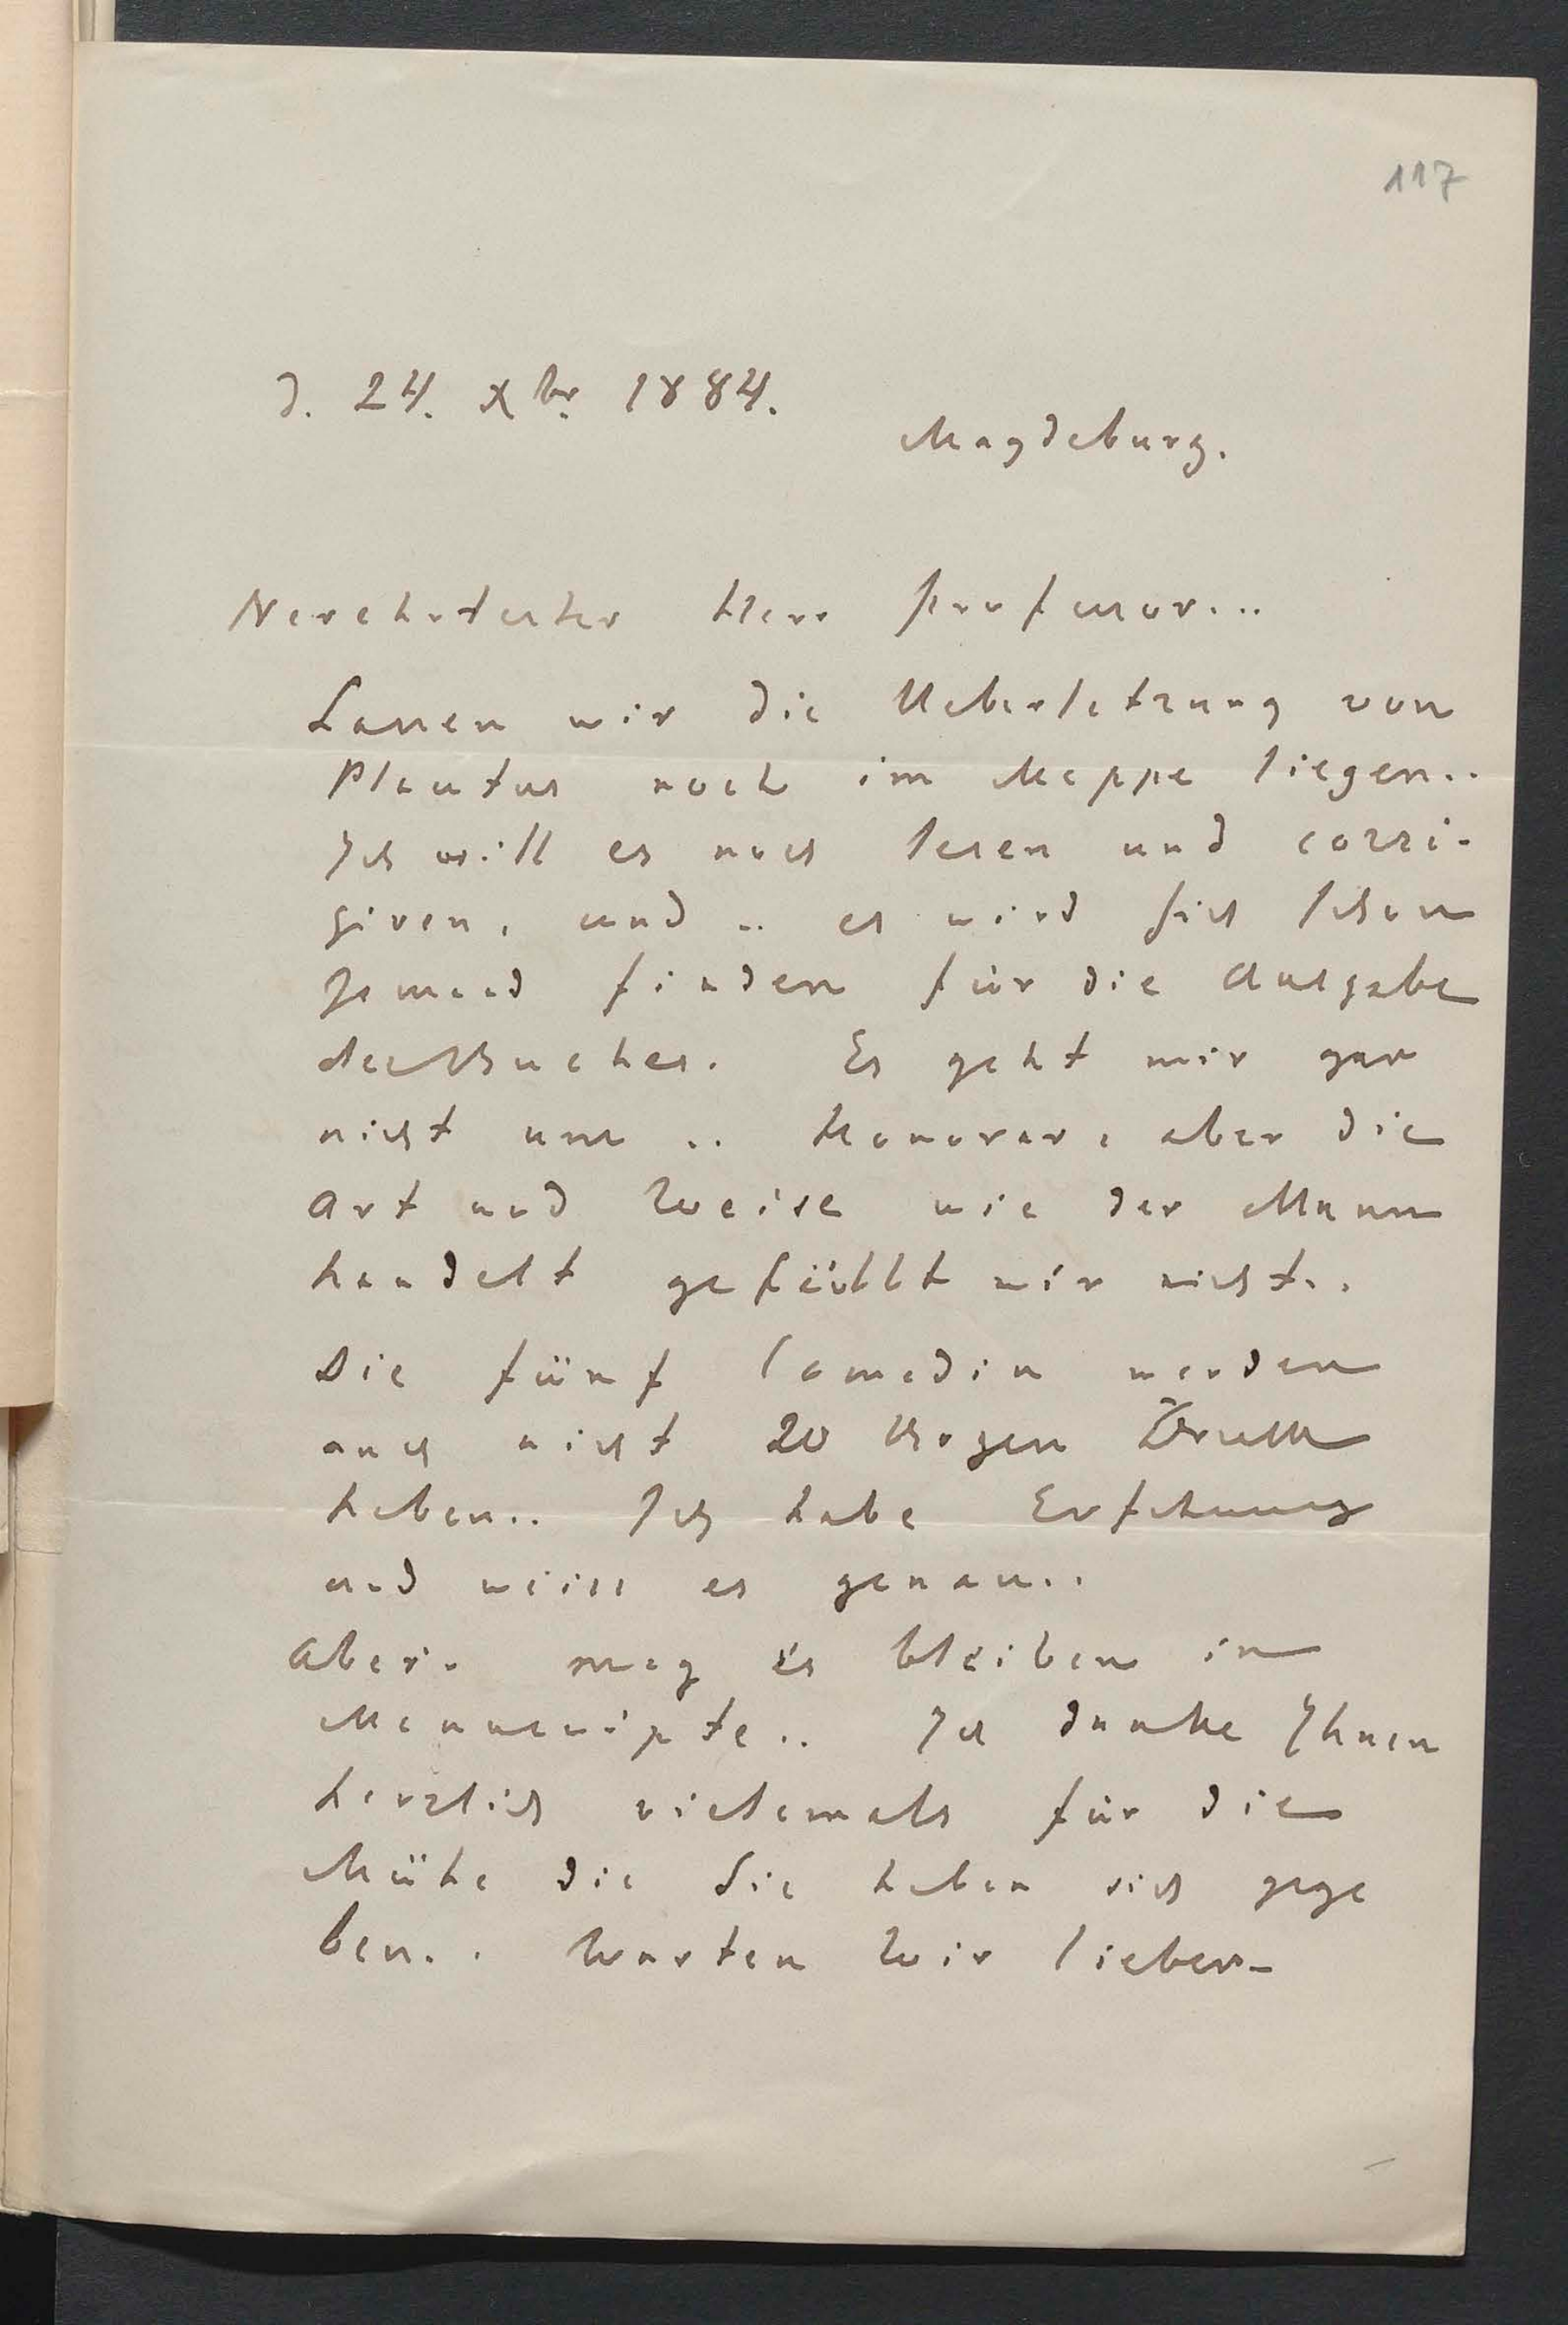 117
d. 24. Xbr. 1884.
Magdeburg.
Verehrtester Herr Professor...
Lassen wir die Uebersetzung von
Plautus noch im Mappe liegen..
Ich will es noch lesen und corri-
giren, und .. es wird sich schon
Jemand finden für die Ausgabe
des Buches. Es geht mir gar
nicht um .. Honorar, aber die
Art und Weise wie der Mann
handelt gefällt mir nicht..
Die fünf Comedien werden
auch nicht 20 Bogen Druck
haben.. Ich habe Erfahrung
und weiss es genau..
Aber. mag es bleiben in
Manuscripte.. Ich danke Ihnen
herzlich vielemals für die
Mühe die Sie haben sich gege
ben.. Warten Wir lieber-